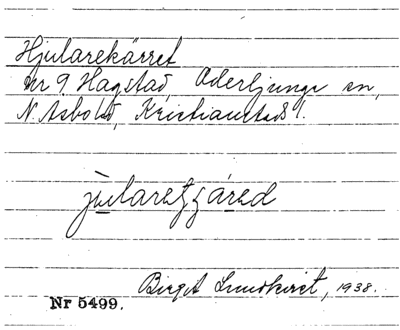 Hjularekärret
nr 9 Hagstad, Oderljunga sn,
N. Åsbo hd, Kristianstads l.
Birgit Lundkvist, 1938.
Nr 5499.